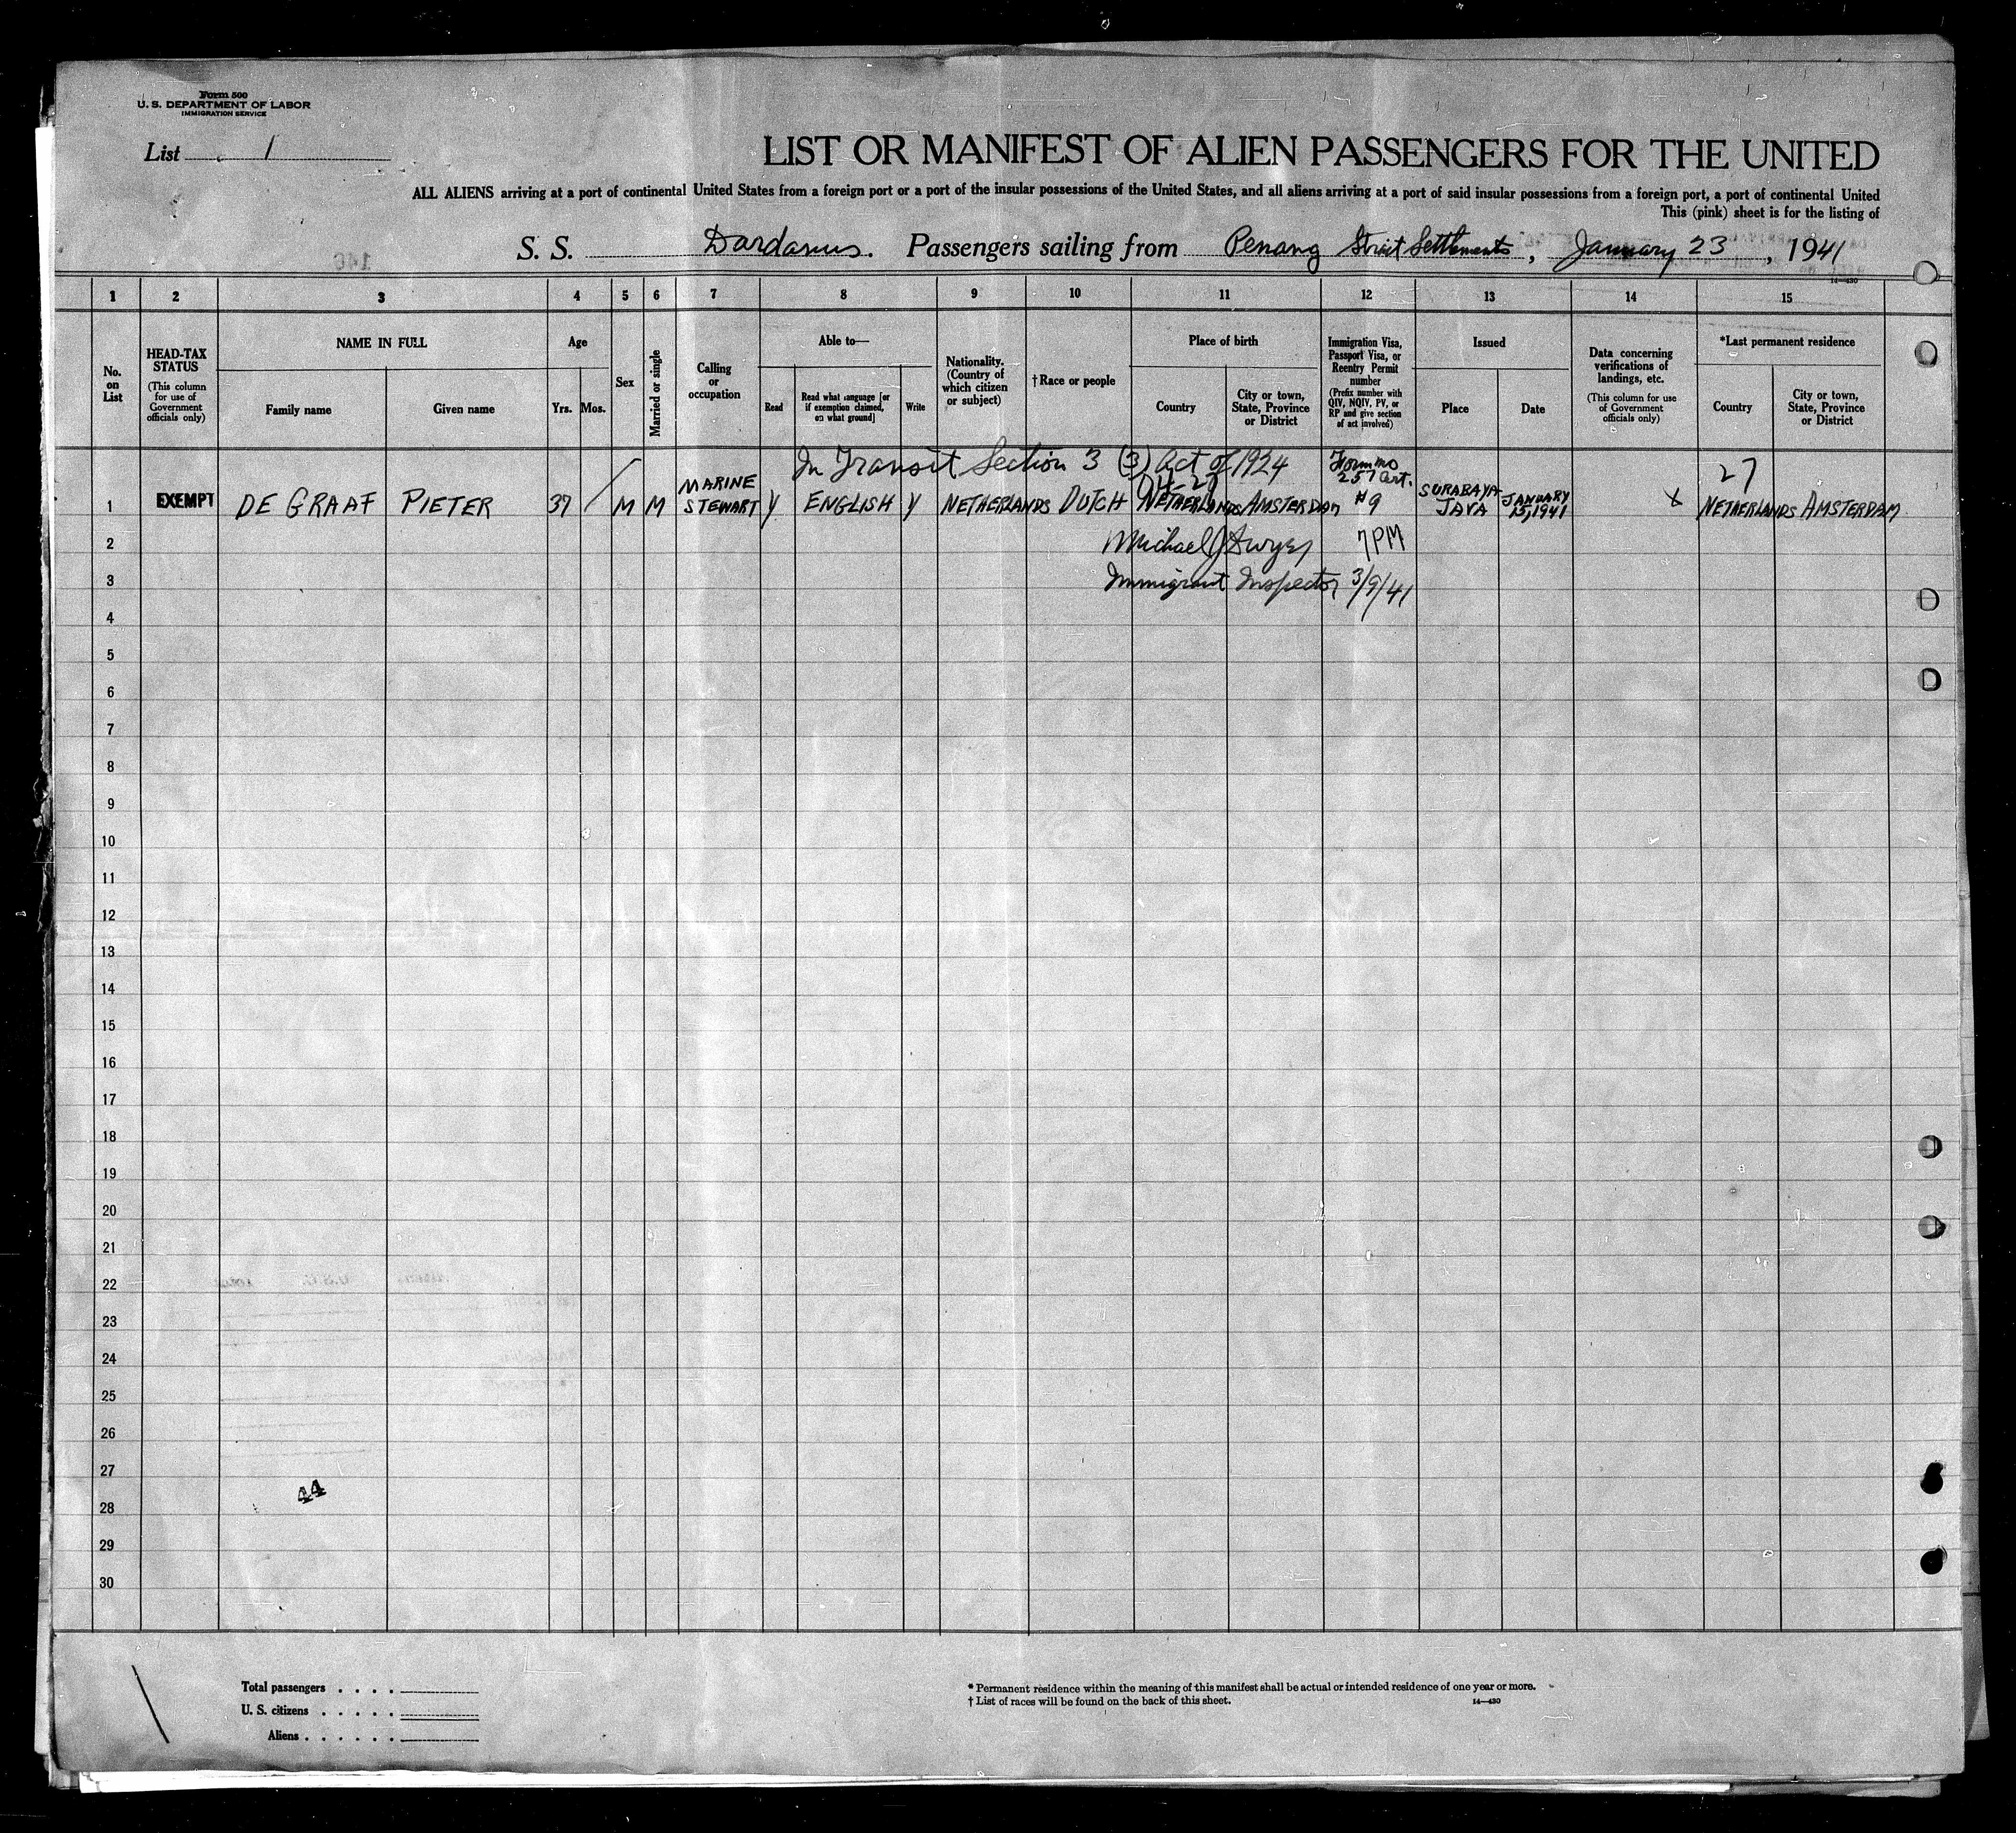 Form 500
U. S. DEPARTMENT OF LABOR
IMMIGRATION SERVICE
List 1
LIST OR MANIFEST OF ALIEN PASSENGERS FOR THE UNITED
ALL ALIENS arriving at a port of continental United States from a foreign port or a port of the insular possessions of the United States, and all aliens arriving at a port of said insular possessions from a foreign port, a port of continental United
This (pink) sheet is for the listing of
S. S. Dardanus. Passengers sailing from Penang Strait Settlements, January 23, 1941
14—430
1 2 3 4 5 6 7 8 9 10 11 12 13 14 15
No. on List
HEAD-TAX STATUS
(This column for use of Government officials only)
NAME IN FULL
Family name
Given name
Age
Yrs. Mos.
Sex
Married or single
Calling or occupation
Able to—
Read
Read what language [or if exemption claimed, on what ground]
Write
Nationality. (Country of which citizen or subject)
†Race or people
Place of birth
Country
City or town, State, Province or District
Immigration Visa, Passport Visa, or Reentry Permit number
(Prefix number with QIV, NQIV, PV, or RP and give section of act involved)
Issued
Place
Date
Data concerning verifications of landings, etc.
(This column for use of Government officials only)
*Last permanent residence
Country
City or town, State, Province or District
In Transit Section 3 (3) Act of 1924
257 Cert.
27
1 EXEMPT DE GRAAF PIETER 37 M M MARINE STEWART Y ENGLISH Y NETHERLANDS DUTCH NETHERLANDS AMSTERDAM #9 SURABAYA JAVA JANUARY 15, 1941 X NETHERLANDS AMSTERDAM
2 Michael J Dwyer 7 PM
3 Immigrant Inspector 3/9/41
4
5
6
7
8
9
10
11
12
13
14
15
16
17
18
19
20
21
22
23
24
25
26
27
44
28
29
30
Total passengers . . . .
U. S. citizens . . . . .
Aliens . . . . . .
* Permanent residence within the meaning of this manifest shall be actual or intended residence of one year or more.
† List of races will be found on the back of this sheet.
14—430